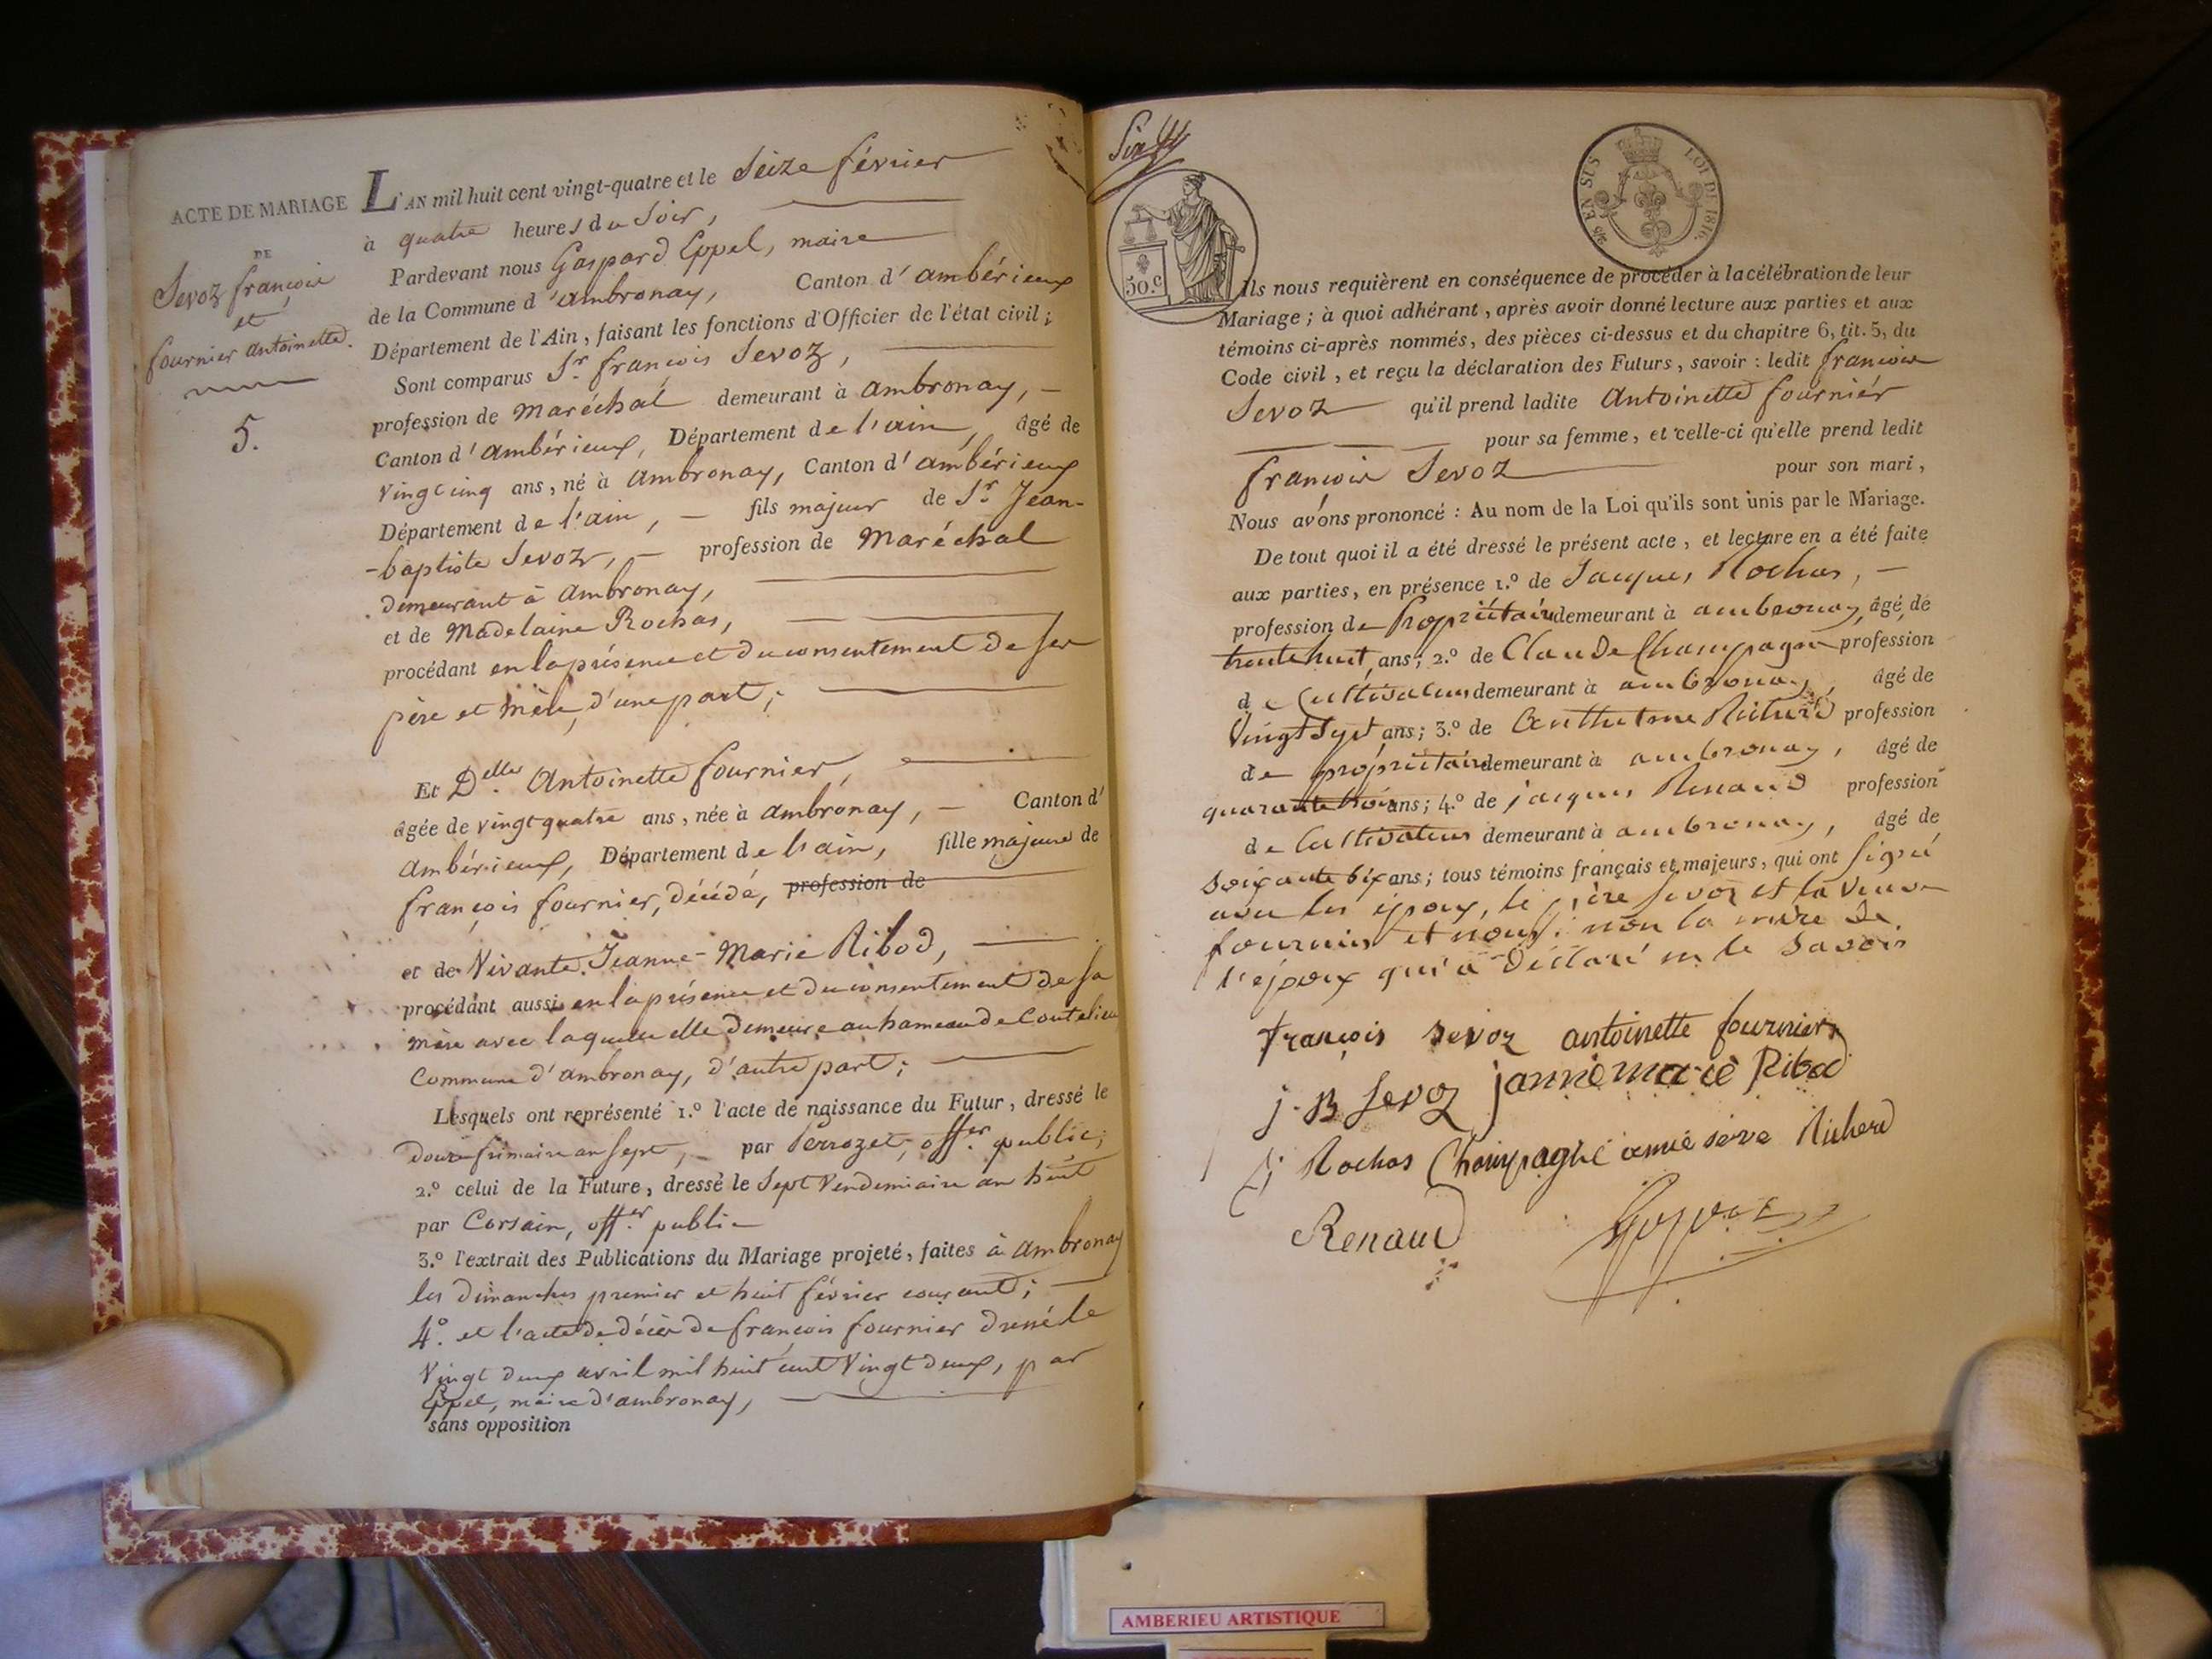 ACTE DE MARIAGE
DE
Sevoz françois
et
fournier antoinette.
5.
L'AN mil huit cent vingt-quatre et le Seize février
à quatre heures du Soir,
Pardevant nous Gaspard Eppel, maire
de la Commune d'ambronay, Canton d'ambérieux
Département de l'Ain, faisant les fonctions d'Officier de l'état civil;
Sont comparus Sr. françois Sevoz,
profession de Maréchal demeurant à ambronay,
Canton d'ambérieux, Département de l'ain, âgé de
Vingt cinq ans, né à Ambronay, Canton d'ambérieux
Département de l'ain, fils majeur de Sr. Jean-
-baptiste Sevoz, profession de Maréchal
demeurant à Ambronay,
et de Madelaine Rochas,
procédant en la présence et du consentement de ses
père et mère, d'une part;
Et Delle. Antoinette fournier,
âgée de vingt quatre ans, née à Ambronay, Canton d'
Ambérieux, Département de l'ain, fille majeure de
françois fournier, décédé, profession de
et de Vivante Jeanne-Marie Ribod,
procédant aussi en la présence et du consentement de sa
mère avec laquelle elle demeure au hameau de Coutelieu
Commune d'ambronay, d'autre part;
Lesquels ont représenté 1.º l'acte de naissance du Futur, dressé le
douze frimaire an Sept, par Perrozet, offer. public;
2.º celui de la Future, dressé le Sept Vendemiaire an huit
par Corsain, offer. public
3.º l'extrait des Publications du Mariage projeté, faites à Ambronay
les dimanches premier et huit février courant;
4º. et l'acte de décès de françois fournier dressé le
Vingt deux avril mil huit cent Vingt deux, par
Eppel, maire d'ambronay,
sans opposition
Six
50.c
2/5 EN SUS LOI DE 1816.
Ils nous requièrent en conséquence de procéder à la célébration de leur
Mariage; à quoi adhérant, après avoir donné lecture aux parties et aux
témoins ci-après nommés, des pièces ci-dessus et du chapitre 6, tit. 5, du
Code civil, et reçu la déclaration des Futurs, savoir: ledit françois
Sevoz qu'il prend ladite Antoinette fournier
pour sa femme, et celle-ci qu'elle prend ledit
françois Sevoz pour son mari,
Nous avons prononcé: Au nom de la Loi qu'ils sont unis par le Mariage.
De tout quoi il a été dressé le présent acte, et lecture en a été faite
aux parties, en présence 1.º de Jacques Rochas,
profession de Propriétaire demeurant à ambronay, âgé de
trente huit ans; 2.º de Claude Champagne profession
de Cultivateur demeurant à ambronay, âgé de
Vingt Sept ans; 3.º de Richerd profession
de propriétaire demeurant à ambronay, âgé de
quarante trois ans; 4.º de jacques Renaud profession
de Cultivateur demeurant à ambronay, âgé de
soixante six ans; tous témoins français et majeurs, qui ont signé
avec les époux, le père Sevoz et la veuve
fournier et nous; non la mère de
l'époux qui a déclaré ne le savoir
françois sevoz antoinette fournier
j. B Sevoz jannemarie Ribod
j Rochas Champagne Richerd
Renaud
AMBERIEU ARTISTIQUE